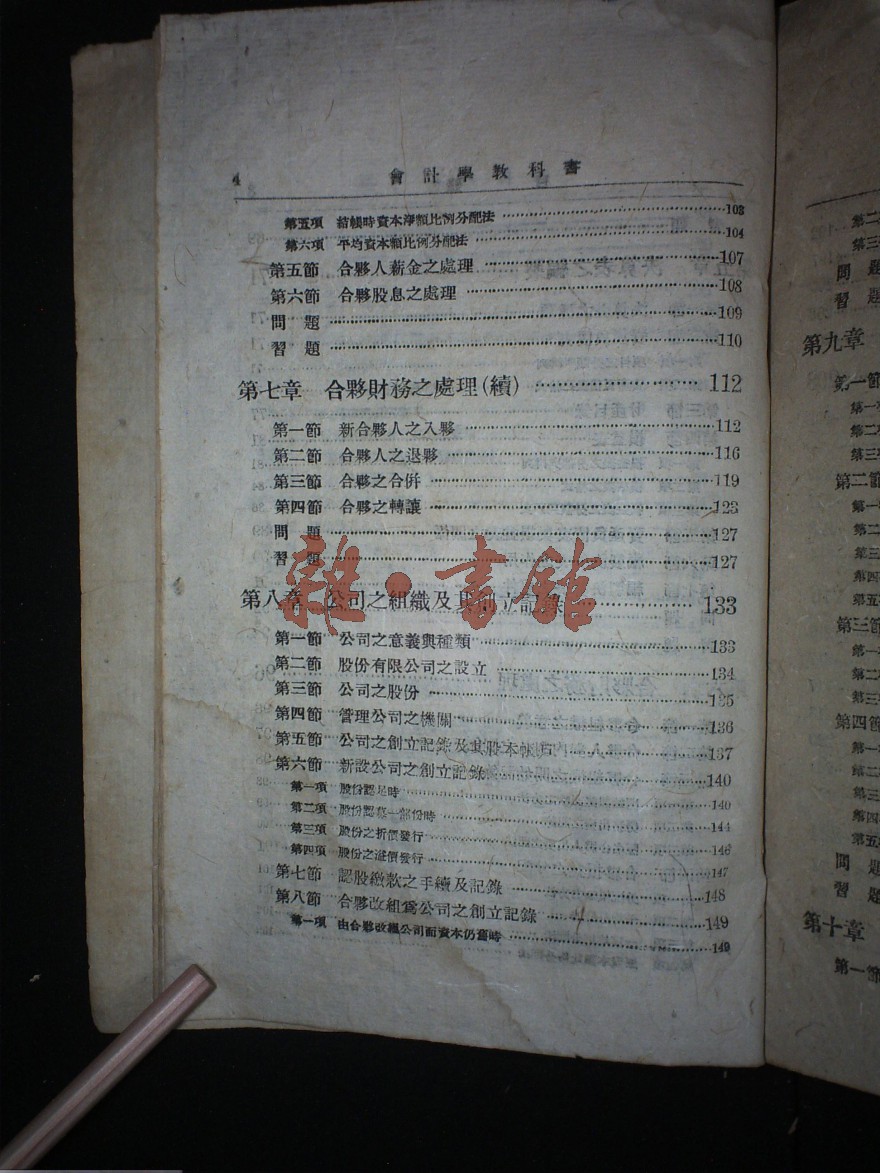 4 會計學教科書
第五項 結帳時資本淨額比例分配法 103
第六項 平均資本額比例分配法 104
第五節 合夥人薪金之處理 107
第六節 合夥股息之處理 108
問題 109
習題 110
第七章 合夥財務之處理(續) 112
第一節 新合夥人之入夥 112
第二節 合夥人之退夥 116
第三節 合夥之合併 119
第四節 合夥之轉讓 123
問題 127
習題 127
雜·書館
第八章 公司之組織及其創立記錄 133
第一節 公司之意義與種類 133
第二節 股份有限公司之設立 134
第三節 公司之股份 135
第四節 管理公司之機關 136
第五節 公司之創立記錄及其股本帳戶 137
第六節 新設公司之創立記錄 140
第一項 股份認足時 140
第二項 股份認募一部份時 144
第三項 股份之折價發行 146
第四項 股份之溢價發行 147
第七節 認股繳款之手續及記錄 148
第八節 合夥改組爲公司之創立記錄 149
第一項 由合夥改組公司而資本仍舊時 149
第二
第三
問題
習題
第九章
第一節
第一項
第二項
第三項
第二節
第一
第二
第三
第四
第五
第三節
第一
第二
第三
第四節
第一
第二
第三
第四
第五
問題
習題
第十章
第一節